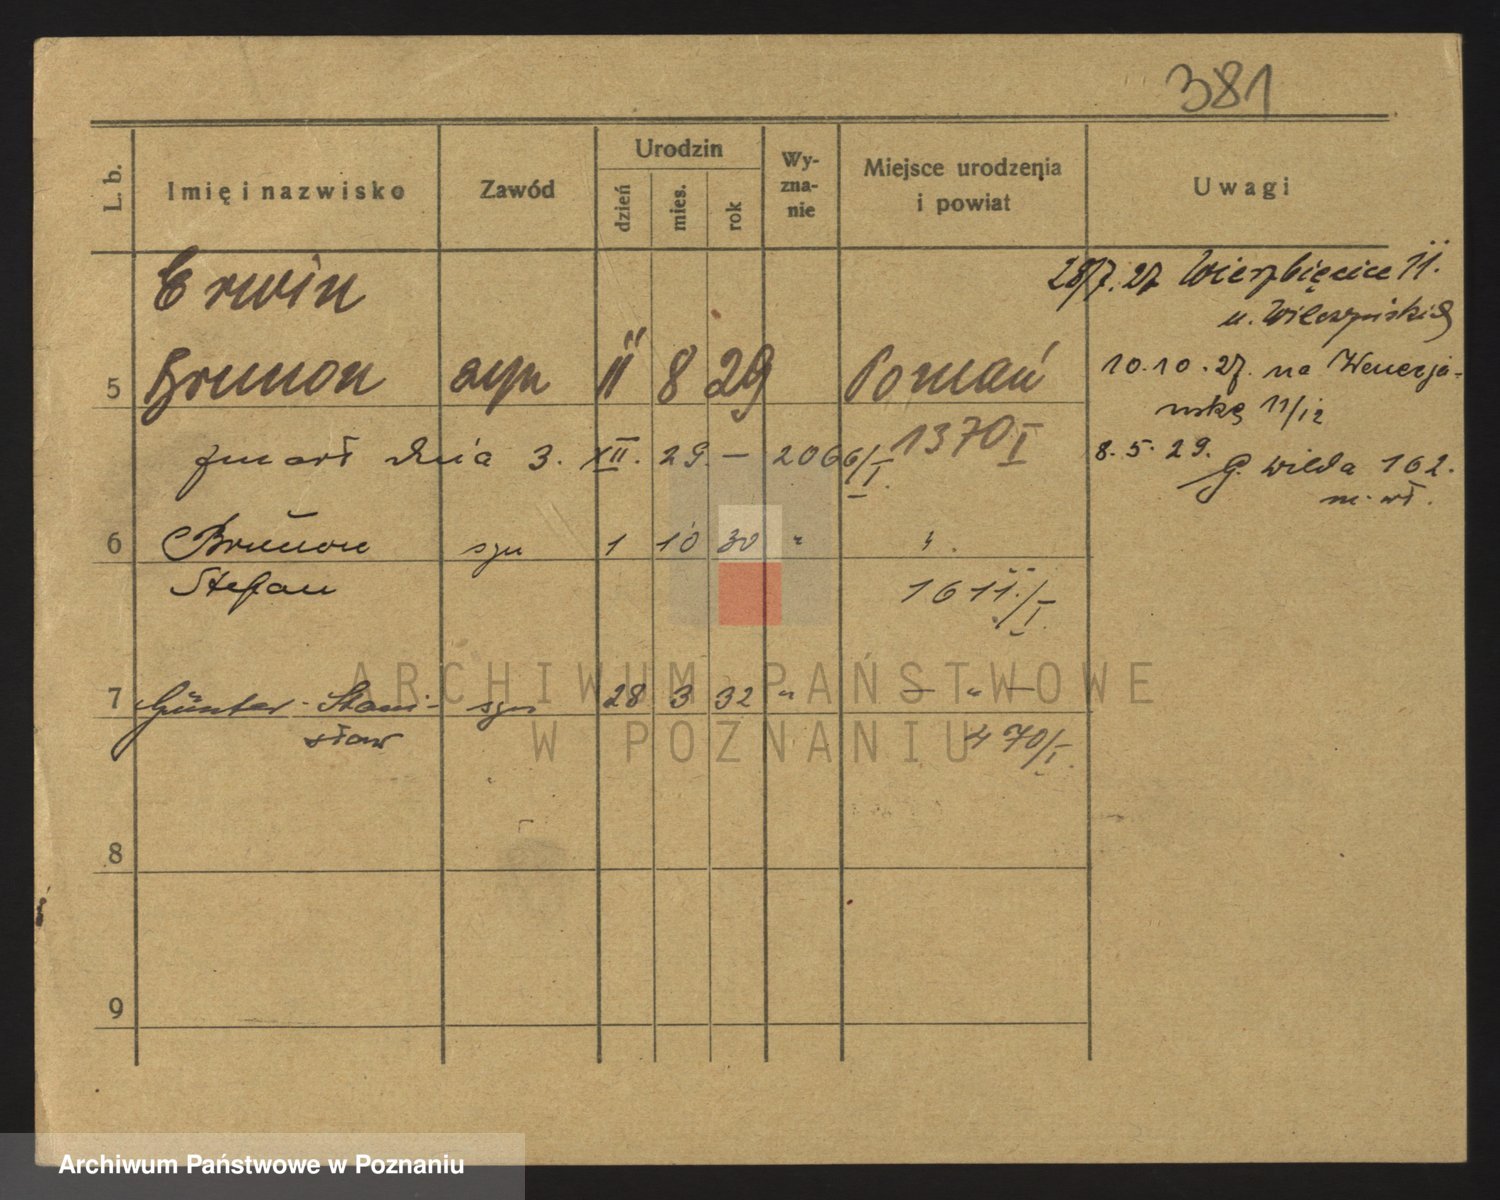 381
L. b.
Imię i nazwisko
Zawód
Urodzin
dzień
mies.
rok
Wy-
zna-
nie
Miejsce urodzenia
i powiat
Uwagi
Erwin
5 Brunon syn 11 8 29 Poznań
1370 I
zmarł dnia 3. XII. 29. — 2066/I.
6 Brunon syn 1 10 30 " "
Stefan
1611/I.
7 Günter-Stani- syn 28 3 32 " — " —
sław
470/I.
8
9
28/7.27 Wierzbięcice 11.
u. Wilczyńskiej
10.10.27. na Wenecja-
nską 11/12
8.5.29. G. Wilda 162.
m. wł.
ARCHIWUM PAŃSTWOWE
W POZNANIU
Archiwum Państwowe w Poznaniu